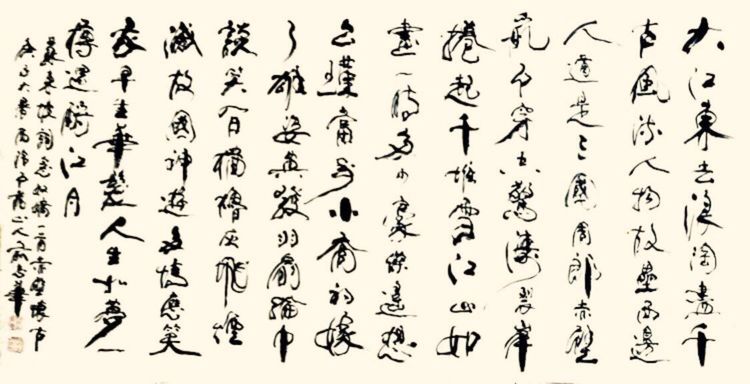 大江東去浪淘盡千
古風流人物故壘西邊
人道是三國周郎赤壁
亂石穿空驚濤裂岸
捲起千堆雪江山如
畫一時多少豪傑遙想
公瑾當年小喬初嫁
了雄姿英發羽扇綸巾
談笑間檣櫓灰飛煙
滅故國神遊多情應笑
我早生華髮人生如夢一
樽還酹江月
蘇東坡詞念奴嬌一首赤壁懷古
山人